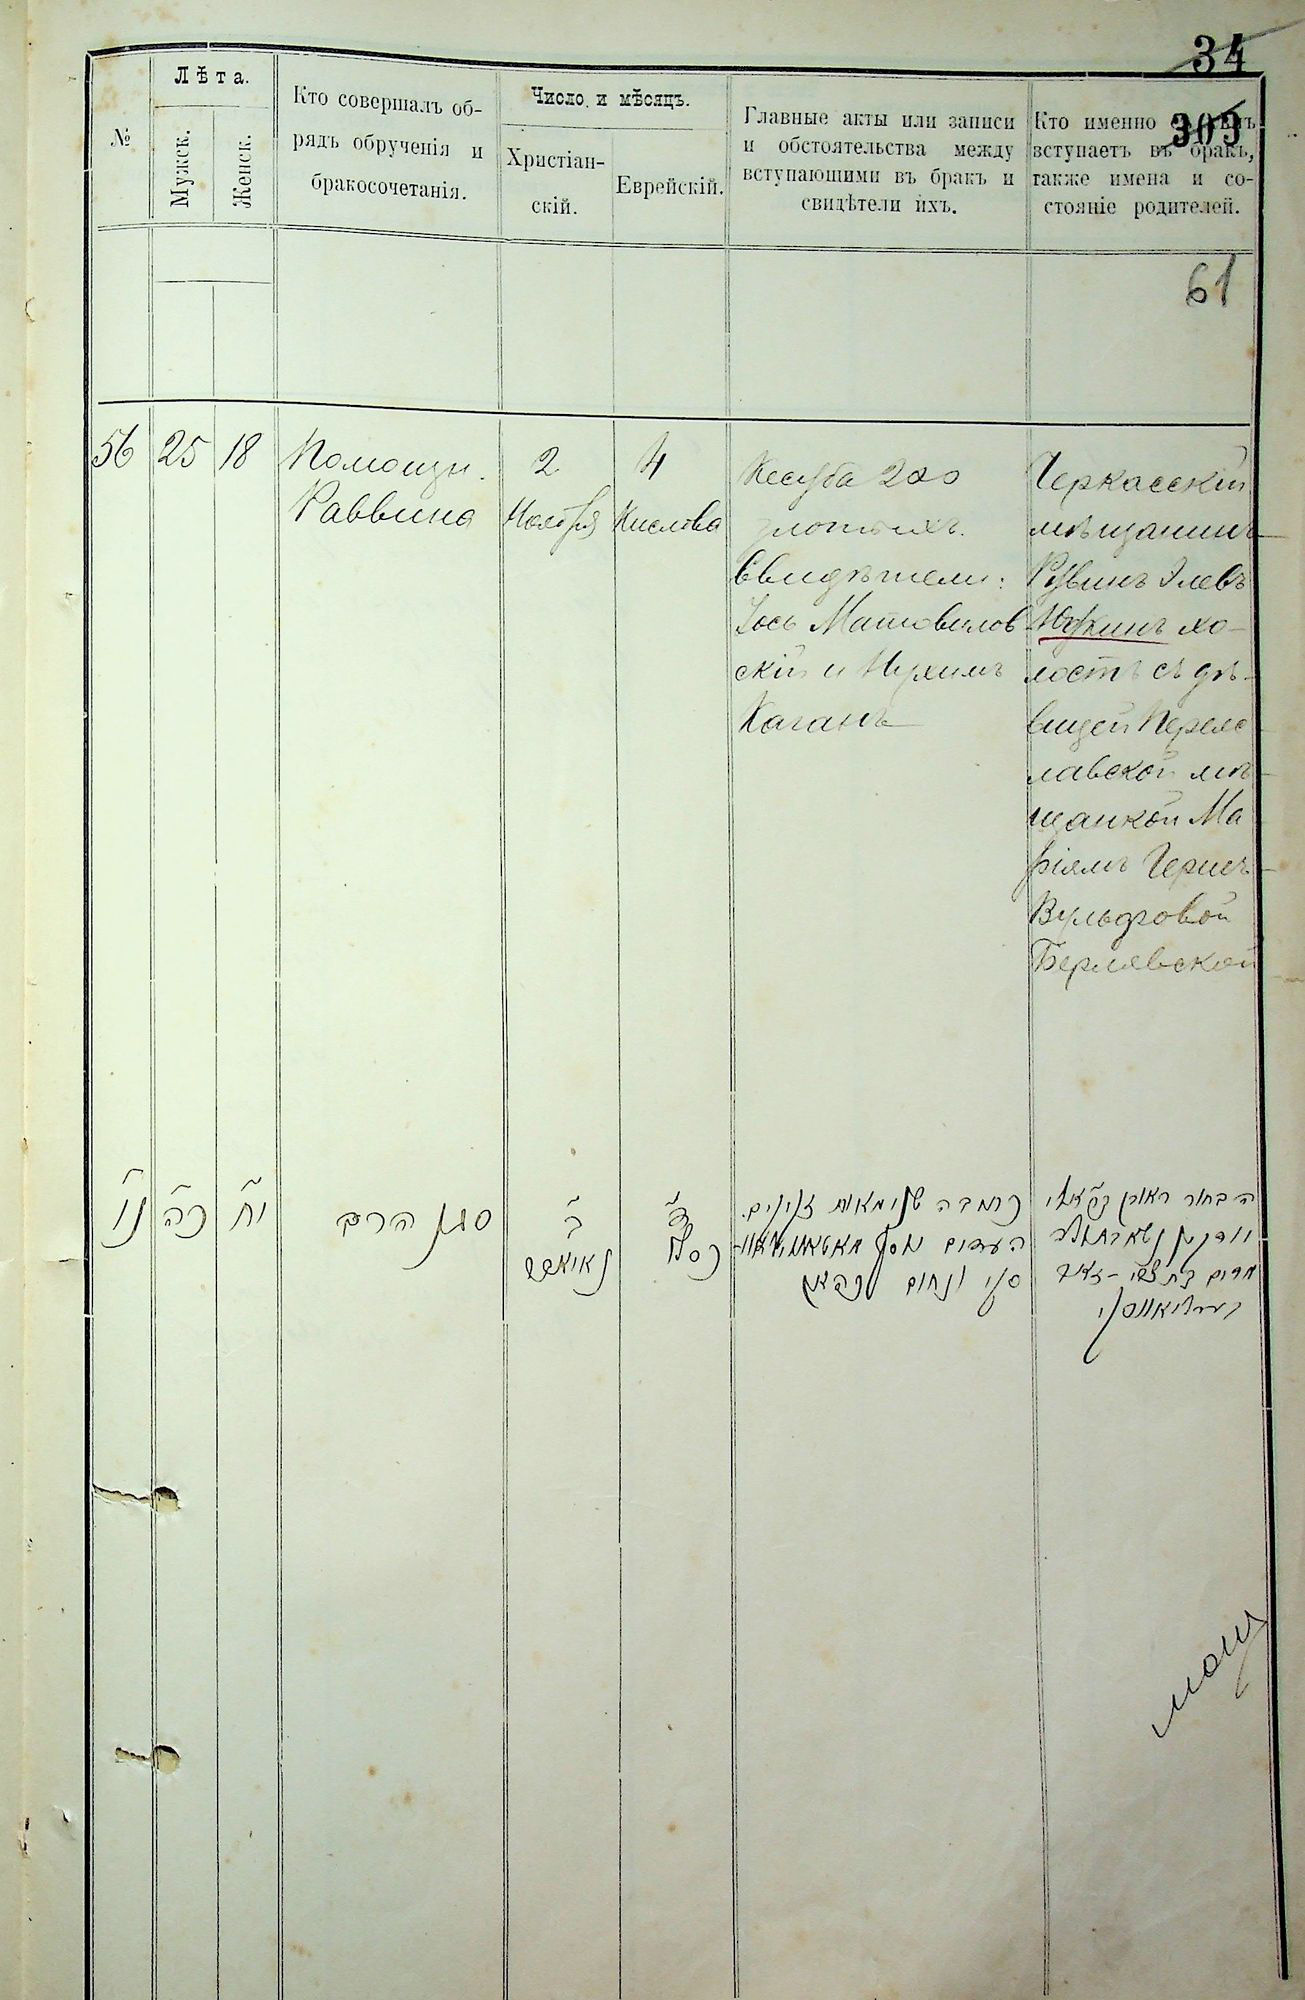 34
303
Лѣта.
№
Мужск.
Женск.
Кто совершалъ об-
рядъ обрученія и
бракосочетанія.
Число и мѣсяцъ.
Христіан-
скій.
Еврейскій.
Главные акты или записи
и обстоятельства между
вступающими въ бракъ и
свидѣтели ихъ.
Кто именно съ кѣмъ
вступаетъ въ бракъ,
также имена и со-
стояніе родителей.
61
56
25
18
Помощн.
Раввина
2
Ноября
4
Кислева
Кесуба 200
злотыхъ.
Свидѣтели:
Іось Матовилов
скій и Нухимъ
Каганъ
Черкасскій
мѣщанинъ
Рувинъ Элевъ
холостъ съ дѣ-
вицей Переяс
лавской мѣ-
щанкой Ма
ріямъ Герш-
Вульфовой
Берлявской
נו
כה
יח
סגן הרב
ב
נאיאבר
ד
כסלו
כתובה מאות זהובים.
העדים יוסף
סקי ונחום כהאן
הבחור ראובן
מרים בת צבי-זאב